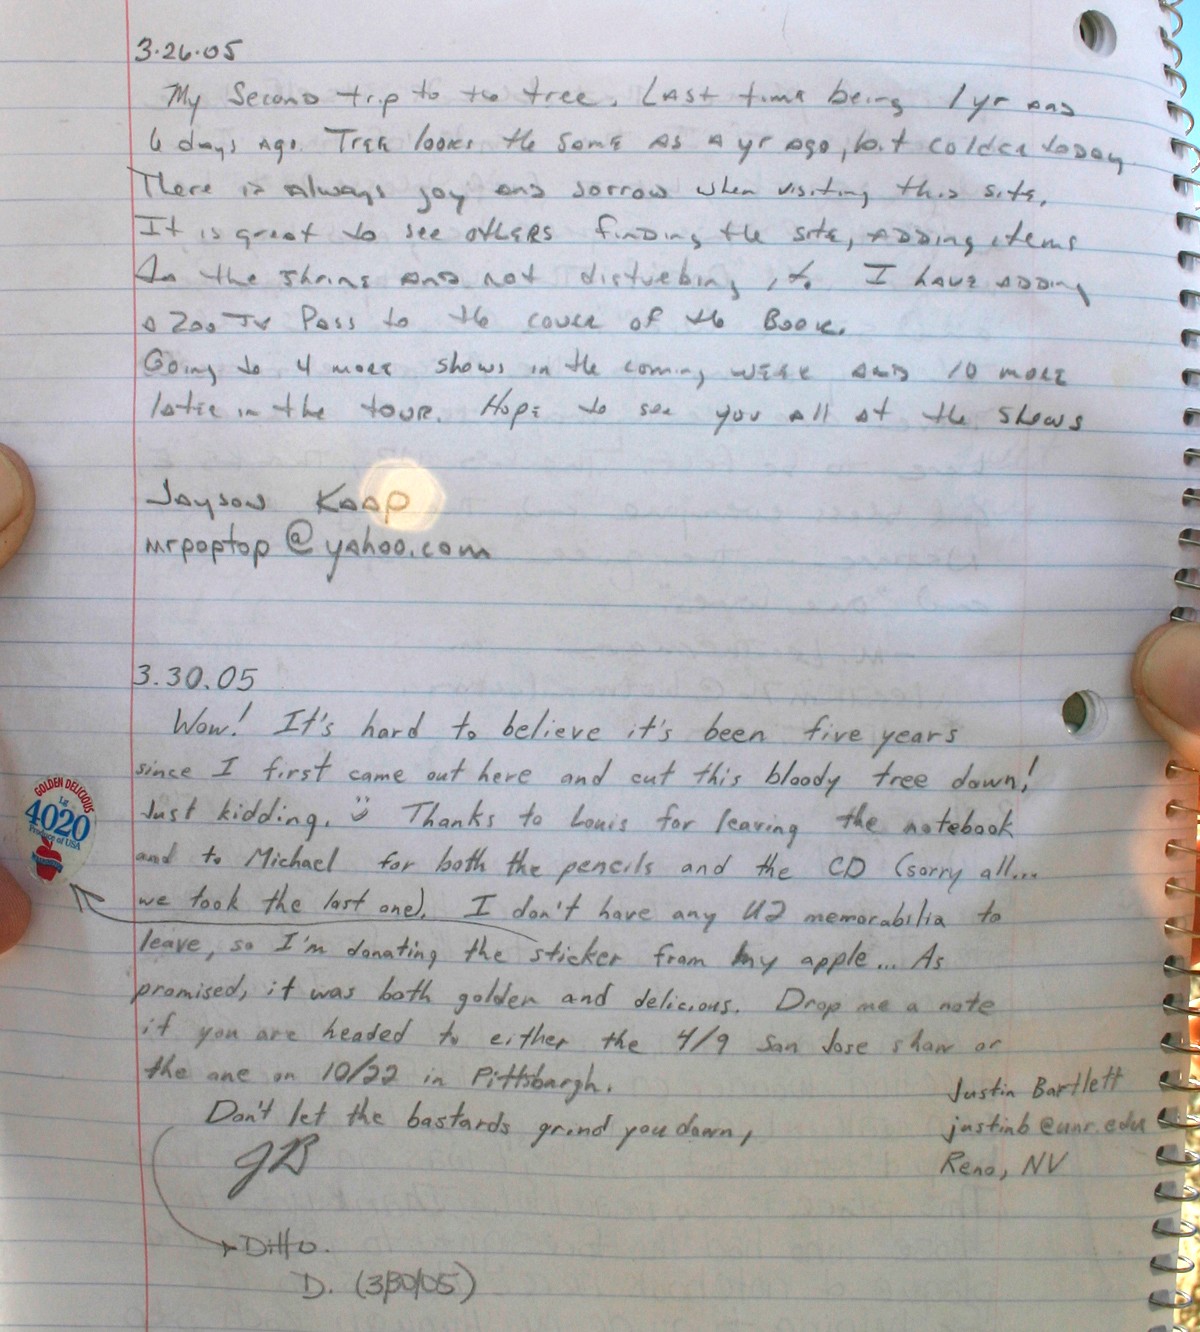 3.26.05
My Second trip to the tree. Last time being 1yr and
6 days ago. Tree looks the same as a yr ago, but colder today
There is always joy and sorrow when visiting this site.
It is great to see others finding the site, adding items
to the shrine and not disturbing it. I have adding
a Zoo TV Pass to the cover of the Book.
Going to 4 more shows in the coming week and 10 more
later in the tour. Hope to see you all at the shows
Jayson Kaap
mrpoptop@yahoo.com
3.30.05
Wow! It's hard to believe it's been five years
since I first came out here and cut this bloody tree down!
Just kidding. Thanks to Louis for leaving the notebook
and to Michael for both the pencils and the CD (sorry all...
we took the last one). I don't have any U2 memorabilia to
leave, so I'm donating the sticker from my apple... As
promised, it was both golden and delicious. Drop me a note
if you are headed to either the 4/9 San Jose show or
the one on 10/22 in Pittsburgh.
Don't let the bastards grind you down,
JB
Justin Bartlett
justinb@unr.edu
Reno, NV
Ditto.
D. (3/30/05)
GOLDEN DELICIOUS
Lg
4020
Produce of USA